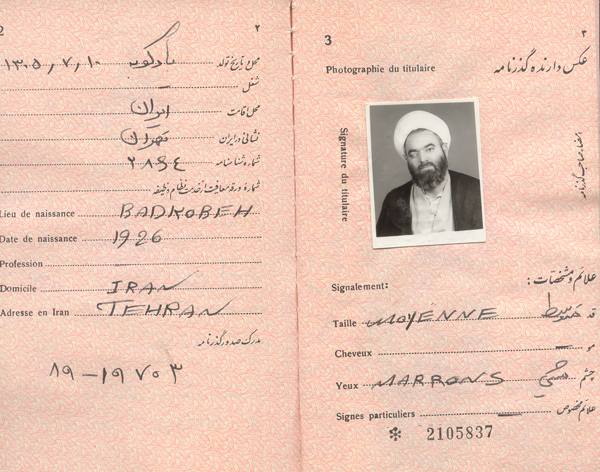 ۲
بادکوبه ۱۳۰۵/۷/۱۰ محل و تاریخ تولد
شغل
محل اقامت ایران
نشانی در ایران تهران
شماره شناسنامه ۲۸۹۴
شماره ورقه معافیت از خدمت نظام وظیفه
Lieu de naissance BADKOBEH
Date de naissance 1926
Profession
Domicile IRAN
Adresse en Iran TEHRAN
مدرک صدور گذرنامه
۸۹-۱۹۷۰۳
3 ۳
Photographie du titulaire عکس دارنده گذرنامه
Signature du titulaire
امضاء صاحب گذرنامه
Signalement: علائم و مشخصات:
Taille MOYENNE قد متوسط
Cheveux مو
Yeux MARRONS چشم میشی
Signes particuliers علائم مخصوص
✻ 2105837